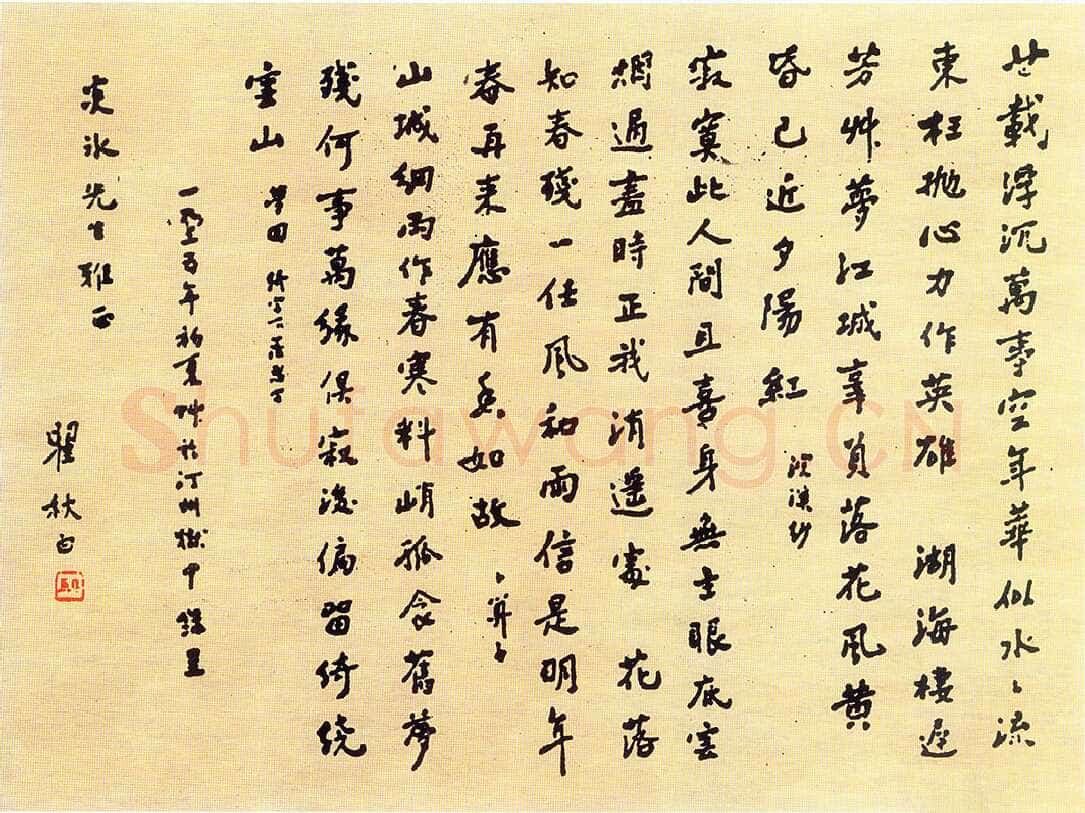 廿載浮沉萬事空年華似水〻流
東枉抛心力作英雄 湖海棲遲
芳艸夢江城辜負落花風黄
昏已近夕陽紅 浣溪紗
寂寞此人間且喜身無主眼底雲
烟過盡時正我消遥處 花落
知春殘一任風和雨信是明年
春再来應有香如故 卜算子
山城細雨作春寒料峭孤衾舊夢
殘何事萬緣俱寂後偏留綺繞
雲山 夢回
一九三五年初夏 於汀州獄中 錄呈
炎冰先生雅正
瞿秋白
shufawang.CN